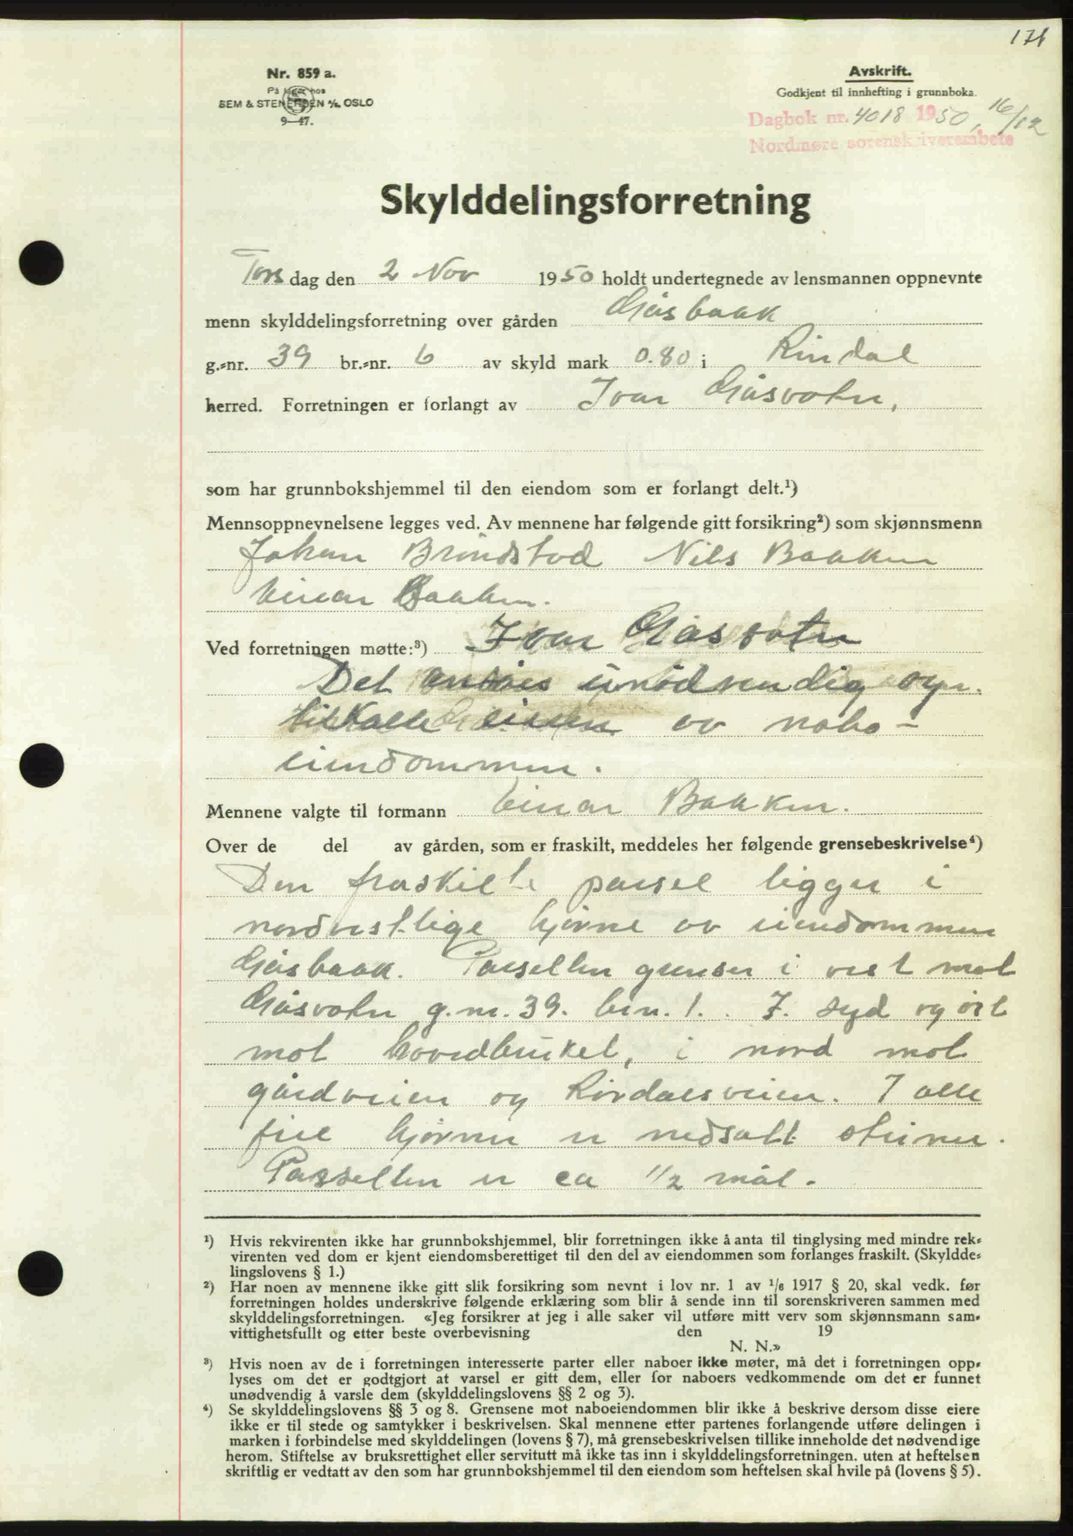 171
Nr. 859 a.
På lager hos
SEM & STENERSEN A/S OSLO
9—47.
Avskrift.
Godkjent til innhefting i grunnboka.
Dagbok nr. 4018 1950, 16/12
Nordmøre sorenskriverembete
Skylddelingsforretning
Torsdag den 2 Nov 1950 holdt undertegnede av lensmannen oppnevnte
menn skylddelingsforretning over gården Gåsbakk
g.-nr. 39 br.-nr. 6 av skyld mark 0.80 i Rindal
herred. Forretningen er forlangt av Ivar Gåsvatn,
som har grunnbokshjemmel til den eiendom som er forlangt delt.¹)
Mennsoppnevnelsene legges ved. Av mennene har følgende gitt forsikring²) som skjønnsmenn
Johan Brøndstad Nils Bakken
Einar Bakken.
Ved forretningen møtte:³) Ivar Gåsvatn
Det ansåes unødvendig og
tilkalle eieren av nabo-
eiendommen.
Mennene valgte til formann Einar Bakken.
Over de del av gården, som er fraskilt, meddeles her følgende grensebeskrivelse⁴)
Den fraskilte parsel ligger i
nordvestlige hjørne av eiendommen
Gåsbakk. Parsellen grenser i vest mot
Gåsvatn g.nr. 39. br.n. 1. I syd og øst
mot hovedbruket, i nord mot
gårdveien og Rørdalsveien. I alle
fire hjørner er nedsatt steiner.
Parsellen er ca 1/2 mål.
¹) Hvis rekvirenten ikke har grunnbokshjemmel, blir forretningen ikke å anta til tinglysing med mindre rek-
virenten ved dom er kjent eiendomsberettiget til den del av eiendommen som forlanges fraskilt. (Skyldde-
lingslovens § 1.)
²) Har noen av mennene ikke gitt slik forsikring som nevnt i lov nr. 1 av 1/6 1917 § 20, skal vedk. før
forretningen holdes underskrive følgende erklæring som blir å sende inn til sorenskriveren sammen med
skylddelingsforretningen. «Jeg forsikrer at jeg i alle saker vil utføre mitt verv som skjønnsmann sam-
vittighetsfullt og etter beste overbevisning den 19
N. N.»
³) Hvis noen av de i forretningen interesserte parter eller naboer ikke møter, må det i forretningen opp-
lyses om det er godtgjort at varsel er gitt dem, eller for naboers vedkommende om det er funnet
unødvendig å varsle dem (skylddelingslovens §§ 2 og 3).
⁴) Se skylddelingslovens §§ 3 og 8. Grensene mot naboeiendommen blir ikke å beskrive dersom disse eiere
ikke er til stede og samtykker i beskrivelsen. Skal mennene etter partenes forlangende utføre delingen i
marken i forbindelse med skylddelingen (lovens § 7), må grensebeskrivelsen tillike inneholde det nødvendige
herom. Stiftelse av bruksrettighet eller servitutt må ikke tas inn i skylddelingsforretningen. uten at heftelsen
skriftlig er vedtatt av den som har grunnbokshjemmel til den eiendom som heftelsen skal hvile på (lovens § 5).